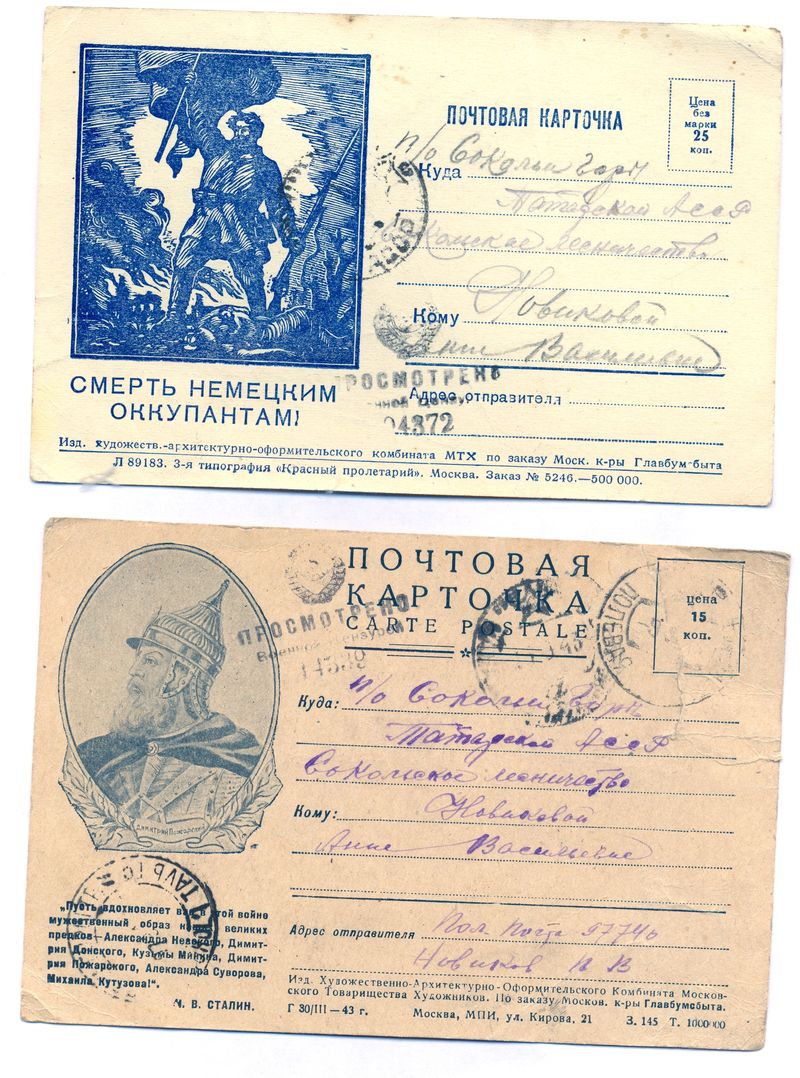 ПОЧТОВАЯ КАРТОЧКА
Цена
без
марки
25
коп.
Куда п/о Сокольи горы
Татарской АССР
лесничество
Кому Новиковой
Анне Васильевне
Адрес отправителя
ПРОСМОТРЕНО
04372
СМЕРТЬ НЕМЕЦКИМ
ОККУПАНТАМ!
Изд. художеств.-архитектурно-оформительского комбината МТХ по заказу Моск. к-ры Главбумсбыта
Л 89183. 3-я типография «Красный пролетарий». Москва. Заказ № 5246.—500 000.
ПОЧТОВАЯ
КАРТОЧКА
CARTE POSTALE
цена
15
коп.
ПРОСМОТРЕНО
Военной Цензурой
Куда: п/о Сокольи Горы
Татарской АССР
лесничество
Кому: Новиковой
Анне Васильевне
Димитрий Пожарский
„Пусть вдохновляет вас в этой войне
мужественный образ наших великих
предков—Александра Невского, Димит-
рия Донского, Кузьмы Минина, Димит-
рия Пожарского, Александра Суворова,
Михаила Кутузова!".
И. В. СТАЛИН.
Адрес отправителя Пол. почта 97746
Новиков П В
Изд. Художественно-Архитектурно-Оформительского Комбината Москов-
ского Товарищества Художников. По заказу Москов. к-ры Главбумсбыта.
Г 30/III—43 г. Москва, МПИ, ул. Кирова, 21 З. 145 Т. 1000000